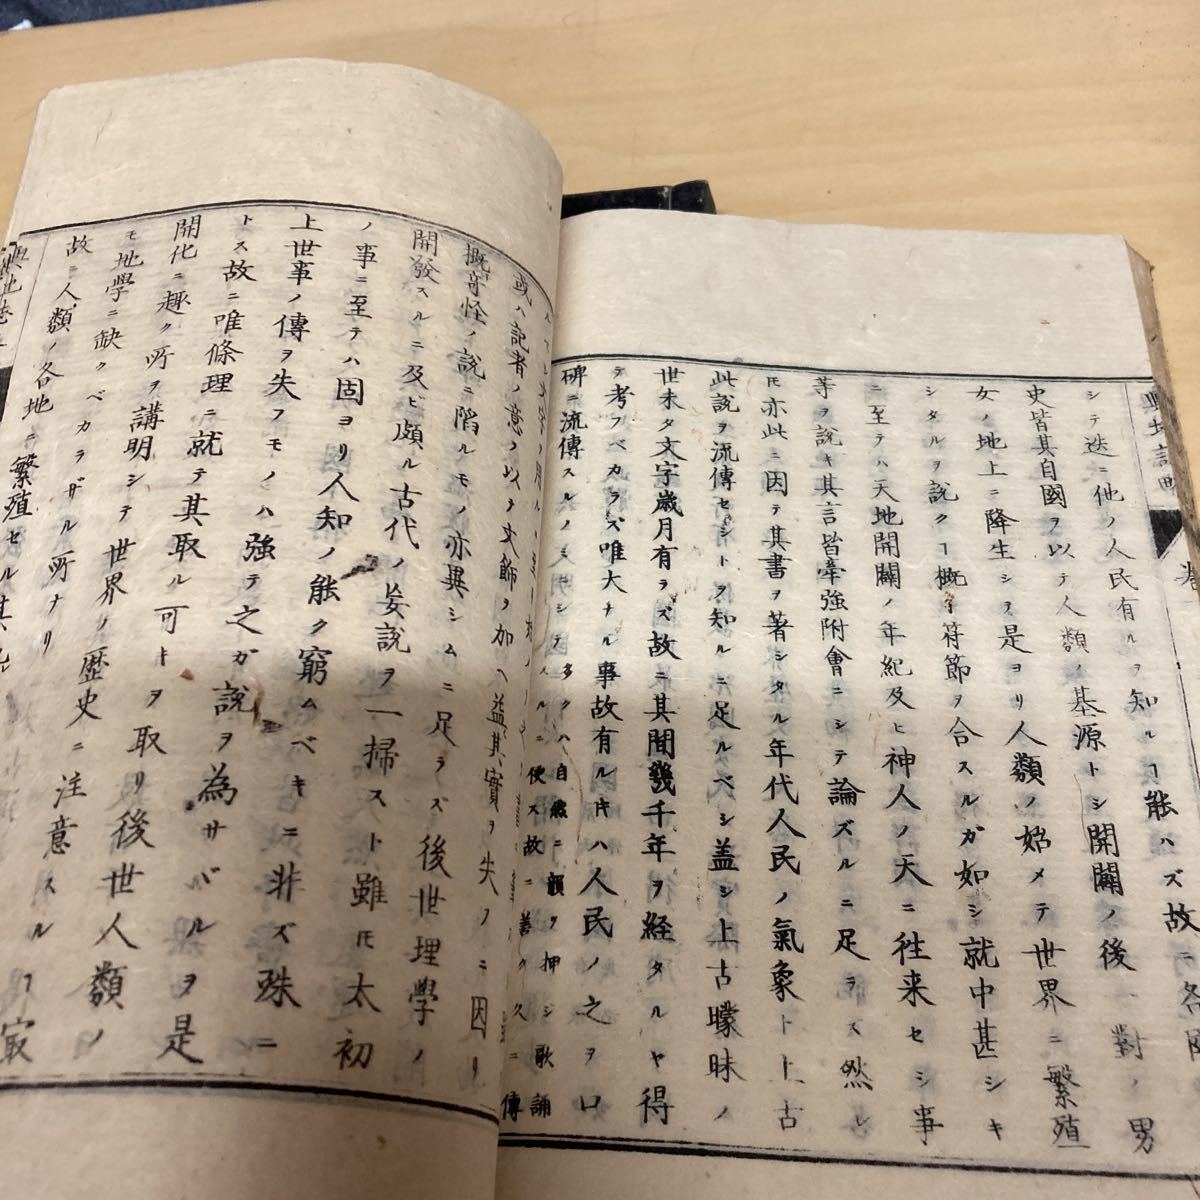 輿地誌略 巻一
シテ迭ニ他ノ人民有ルヲ知ルヿ能ハズ故ニ各國
史皆其自國ヲ以テ人類ノ基源トシ開闢ノ後一對ノ男
女ノ地上ニ降生シヲ是ヨリ人類ノ始メテ世界ニ繁殖
シタルヲ説クヿ概子符節ヲ合スルガ如シ就中甚シキ
ニ至テハ天地開闢ノ年紀及ヒ神人ノ大ニ往来セシ事
等ヲ説キ其言皆牽強附會ニシテ論ズルニ足ラス然レ
𪜈亦此ニ因テ其書ヲ著シタル年代人民ノ氣象ト上古
此説ヲ流傳セシトヲ知ルニ足ルベシ盖シ上古曚昧ノ
世未タ文字歳月有ラズ故ニ其間幾千年ヲ経タルヤ得
テ考フベカラズ唯大ナル事故有ルキハ人民ノ之ヲ口
碑ニ流傳スルノミ
多クハ自然ニ韻ヲ押シ歌誦
ニ便ス故ニ善ク久ニ傳
或ハ記者ノ意ノ以テ文飾ヲ加ヘ益其實ヲ失フニ因リ
概奇怪ノ説ニ陷ルモノ亦異シムニ足ラズ後世理學ノ
開發スルニ及ビ頗ル古代ノ妄説ヲ一掃スト雖𪜈太初
ノ事ニ至テハ固ヨリ人知ノ能ク窮ムベキニ非ズ殊ニ
上世事ノ傳ヲ失フモノハ強テ之ガ説ヲ為サバルヲ是
トス故ニ唯條理ニ就テ其取ル可キヲ取リ後世人類ノ
開化ニ趣ク所ヲ講明シテ世界ノ歴史ニ注意スルヿ㝡
モ地學ニ缺クベカラザル所ナリ
故ニ人類ノ各地ニ繁殖セル其